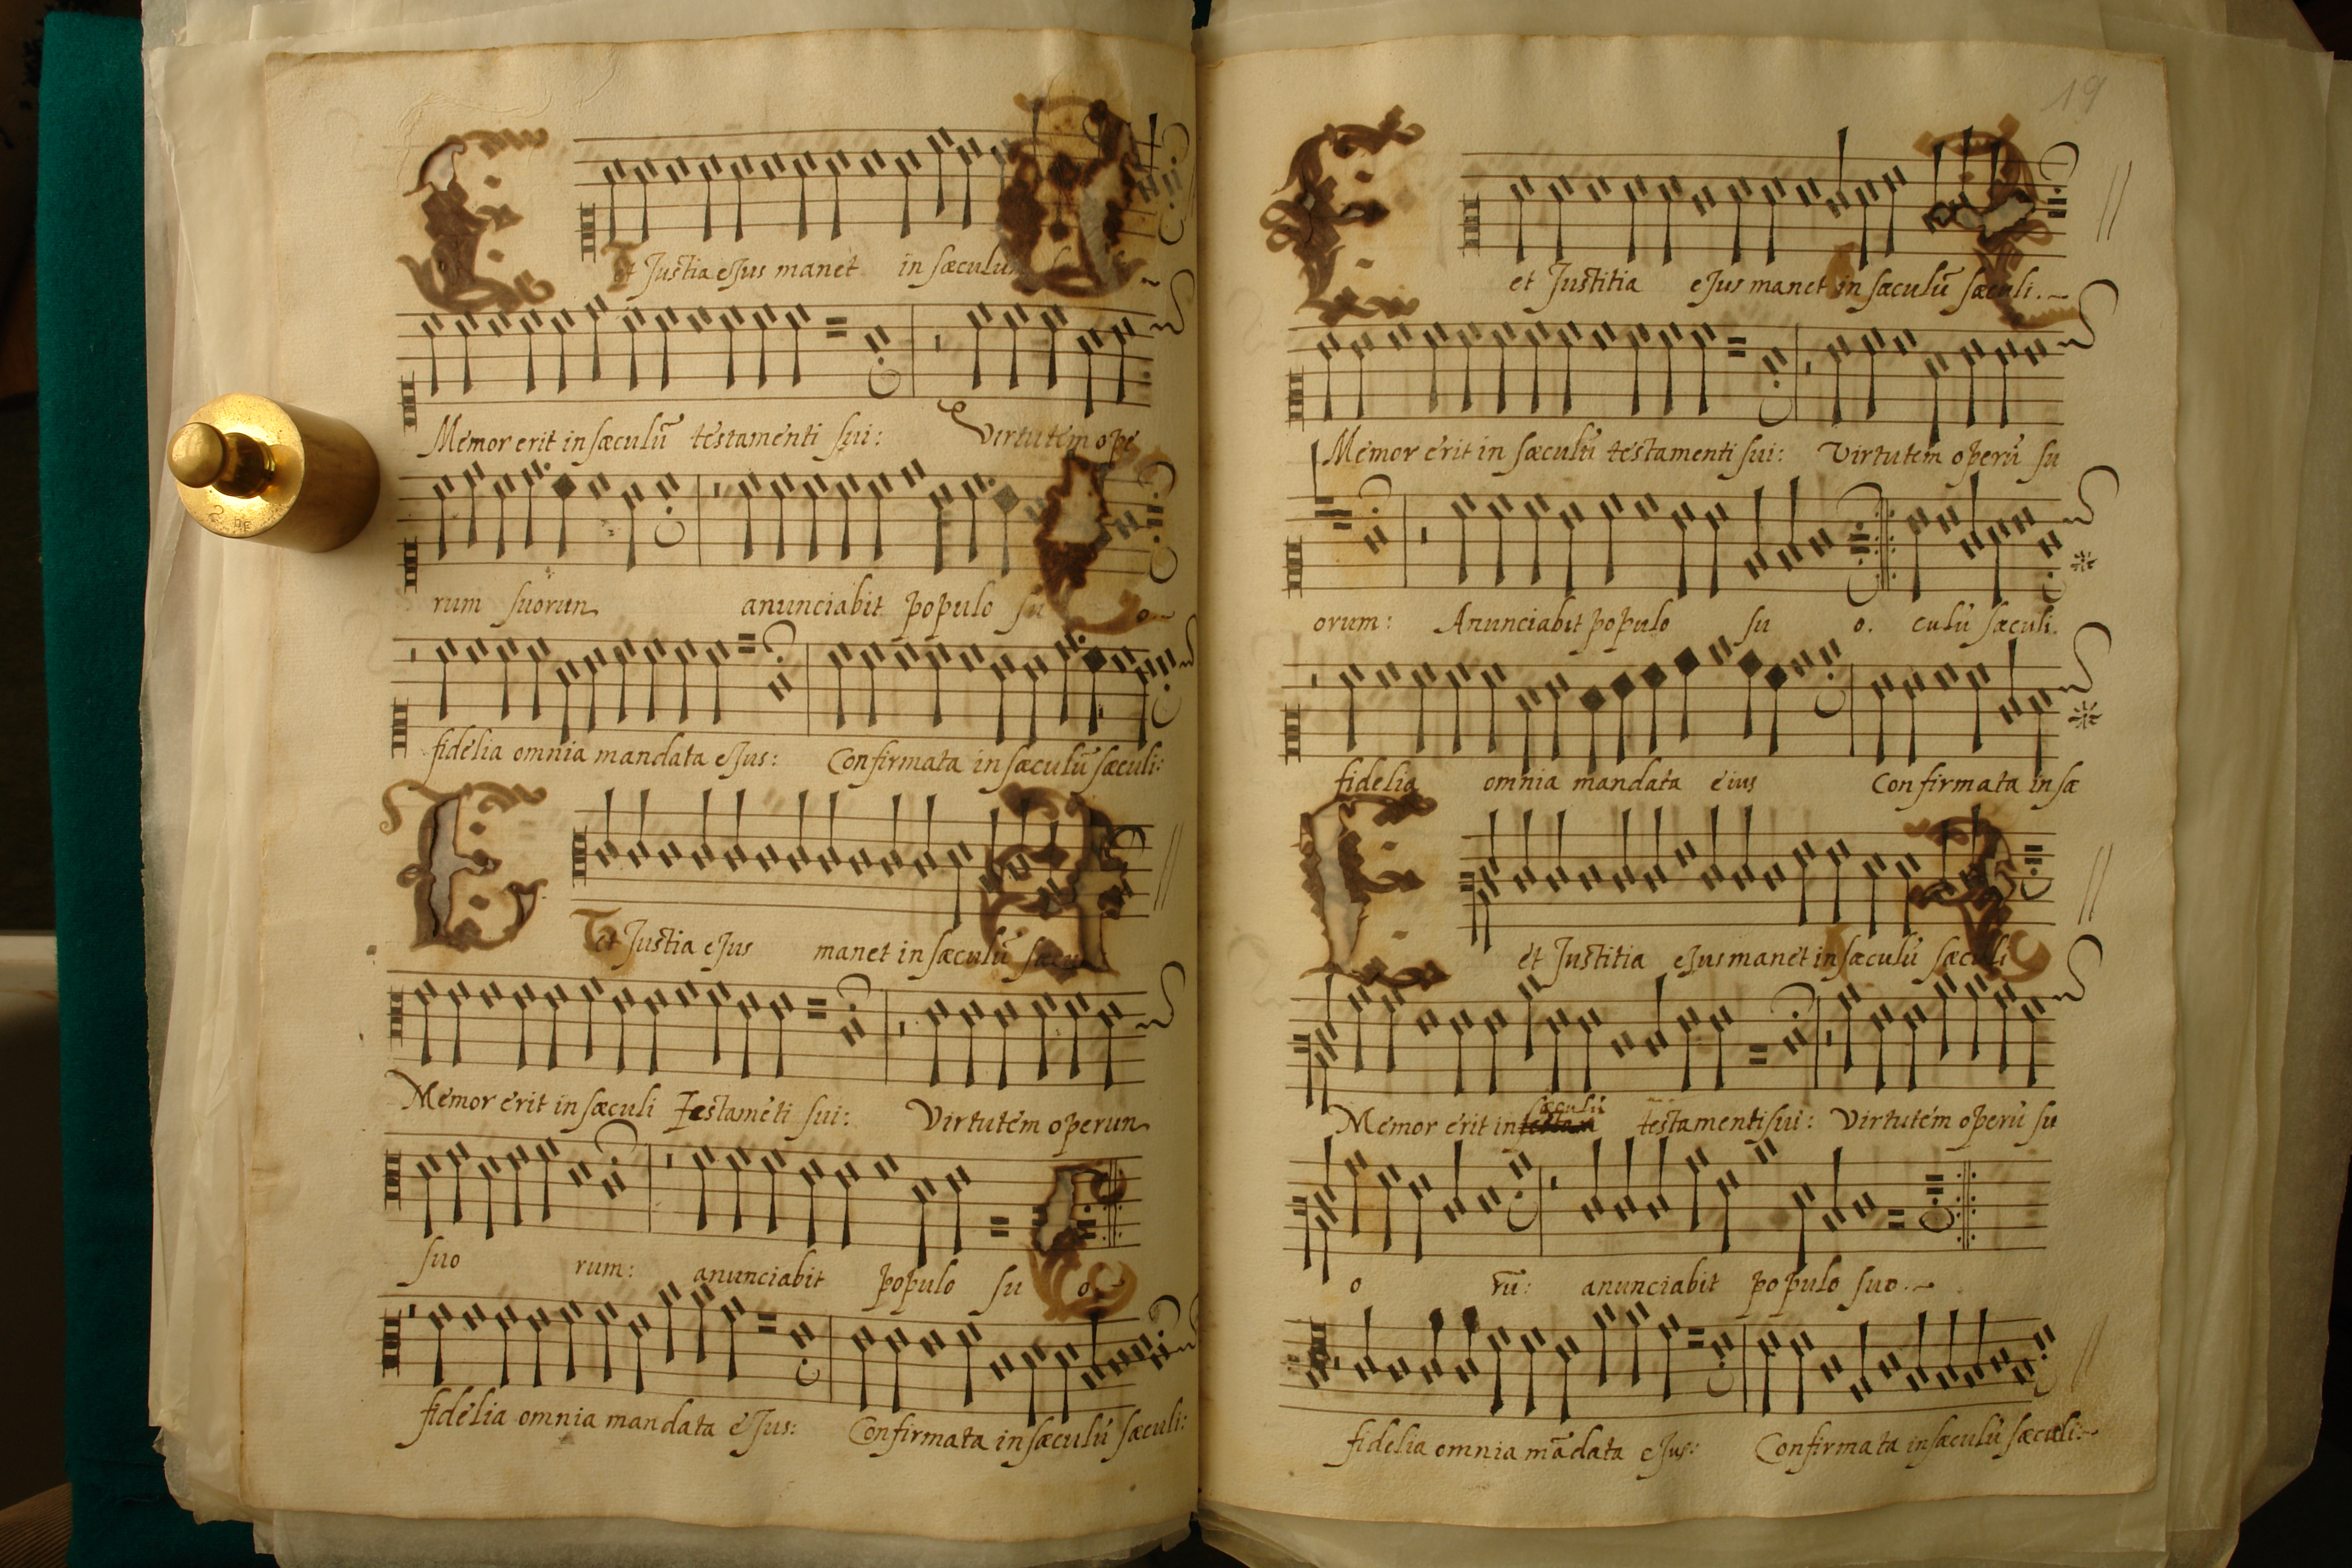 et Justia eJus manet in sæculū
Memor erit in sæculū testamenti sui: Virtutem ope
rum suorun anunciabit populo su o
fidelia omnia mandata eJus: Confirmata in sæculū sæculi:
E
et Justia eJus manet in sæculū
Memor erit in sæculi Testamēti sui: Virtutem operun
suo rum: anunciabit populo su o
fidelia omnia mandata eJus: Confirmata in sæculū sæculi:
19
E
et Justitia eJus manet in sæculū sæculi.
Memor erit in sæculū testamenti sui: Virtutem operū su
orum: Anunciabit populo su o. culū sæculi.
fidelia omnia mandata eius Confirmata in sæ
E
et Justitia eJus manet in sæculū sæculi
sæculū
Memor erit in testamenti sui: Virtutem operū su
o rū: anunciabit populo suo.
fidelia omnia mādata eJus: Confirmata in sæculū sæculi: